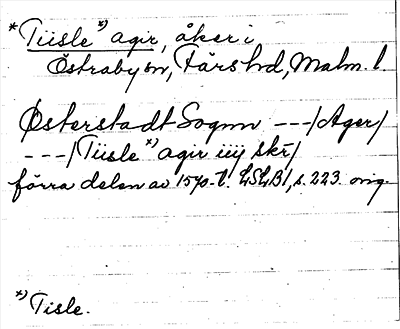 *Tiisle*) agir, åker i
Östraby sn, Färs hd, Malm. l.
Østerstadt Sognn ---/Ager/
---/Tiisle*) agir iiij skr/
förra delen av 1570-t. LSLB1, s. 223. orig.
*) Tisle.